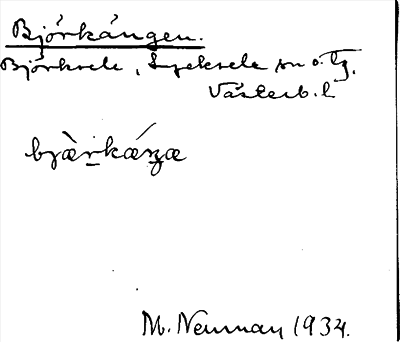 Björkängen.
Björksele, Lycksele sn o. tg.
Västerb. l
bjæ̀rkǽŋæ
M. Neuman 1934.